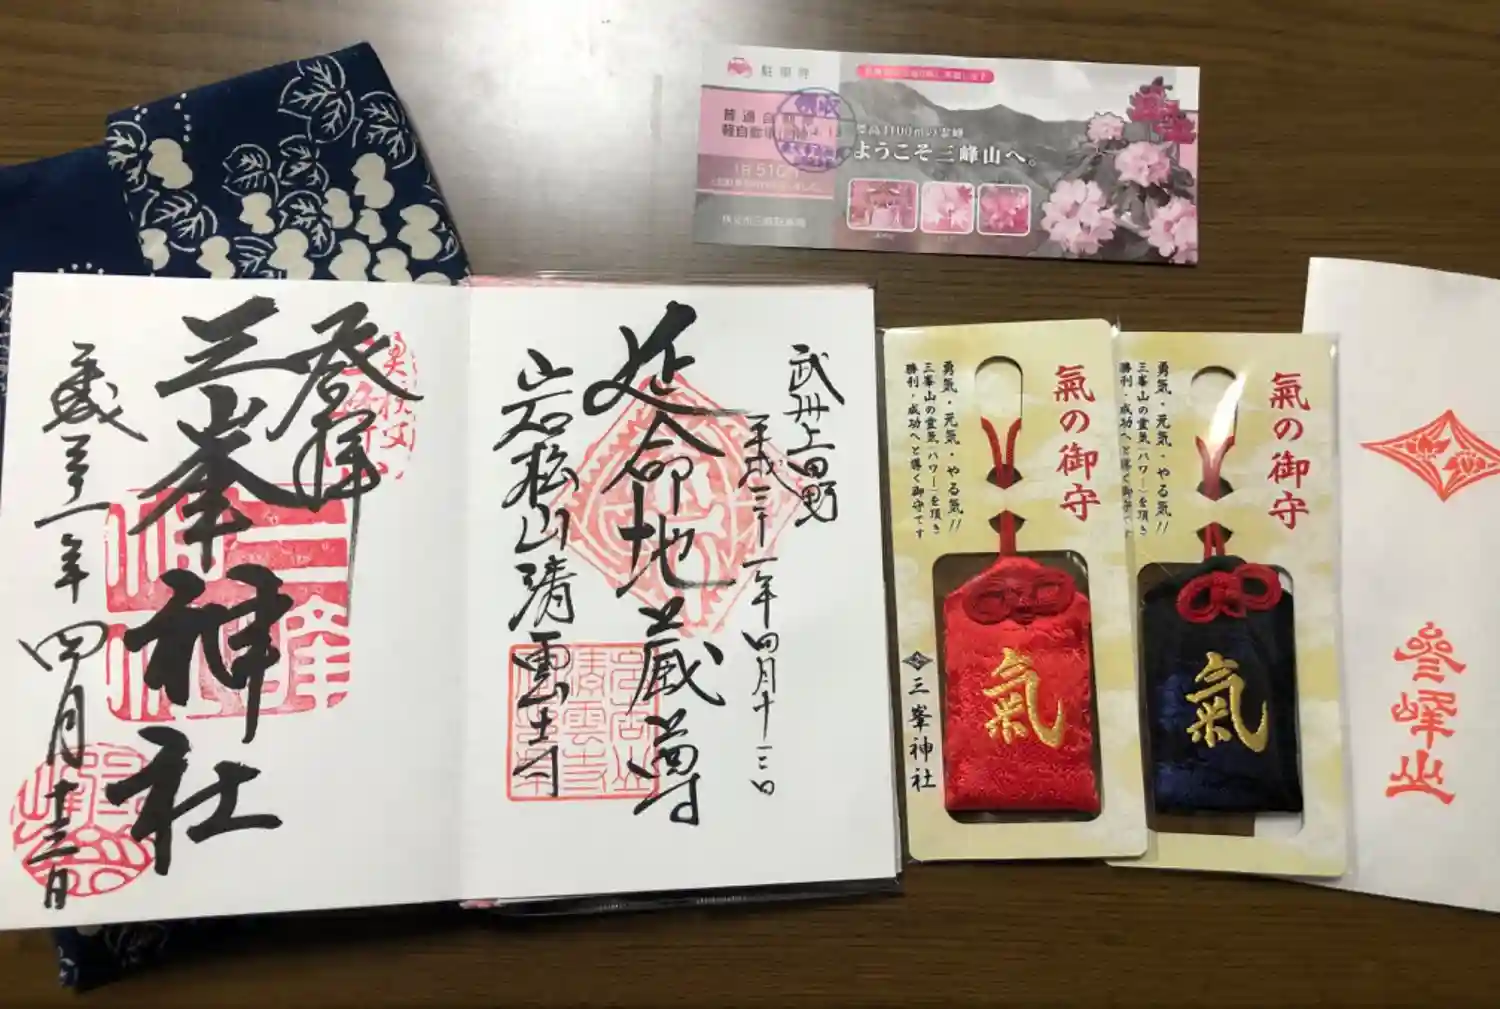 駐車券
普通自動車
軽自動車
領収
1日510円
標高1100mの霊峰
ようこそ三峰山へ。
登拝
三峯神社
平成三十一年四月十三日
武州上田野
平成三十一年四月十三日
延命地蔵尊
岩松山清雲寺
氣の御守
勇氣・元氣・やる氣!!
三峯山の霊氣(パワー)を頂き
勝利・成功へと導く御守です
氣
三峯神社
氣の御守
勇氣・元氣・やる氣!!
三峯山の霊氣(パワー)を頂き
勝利・成功へと導く御守です
氣